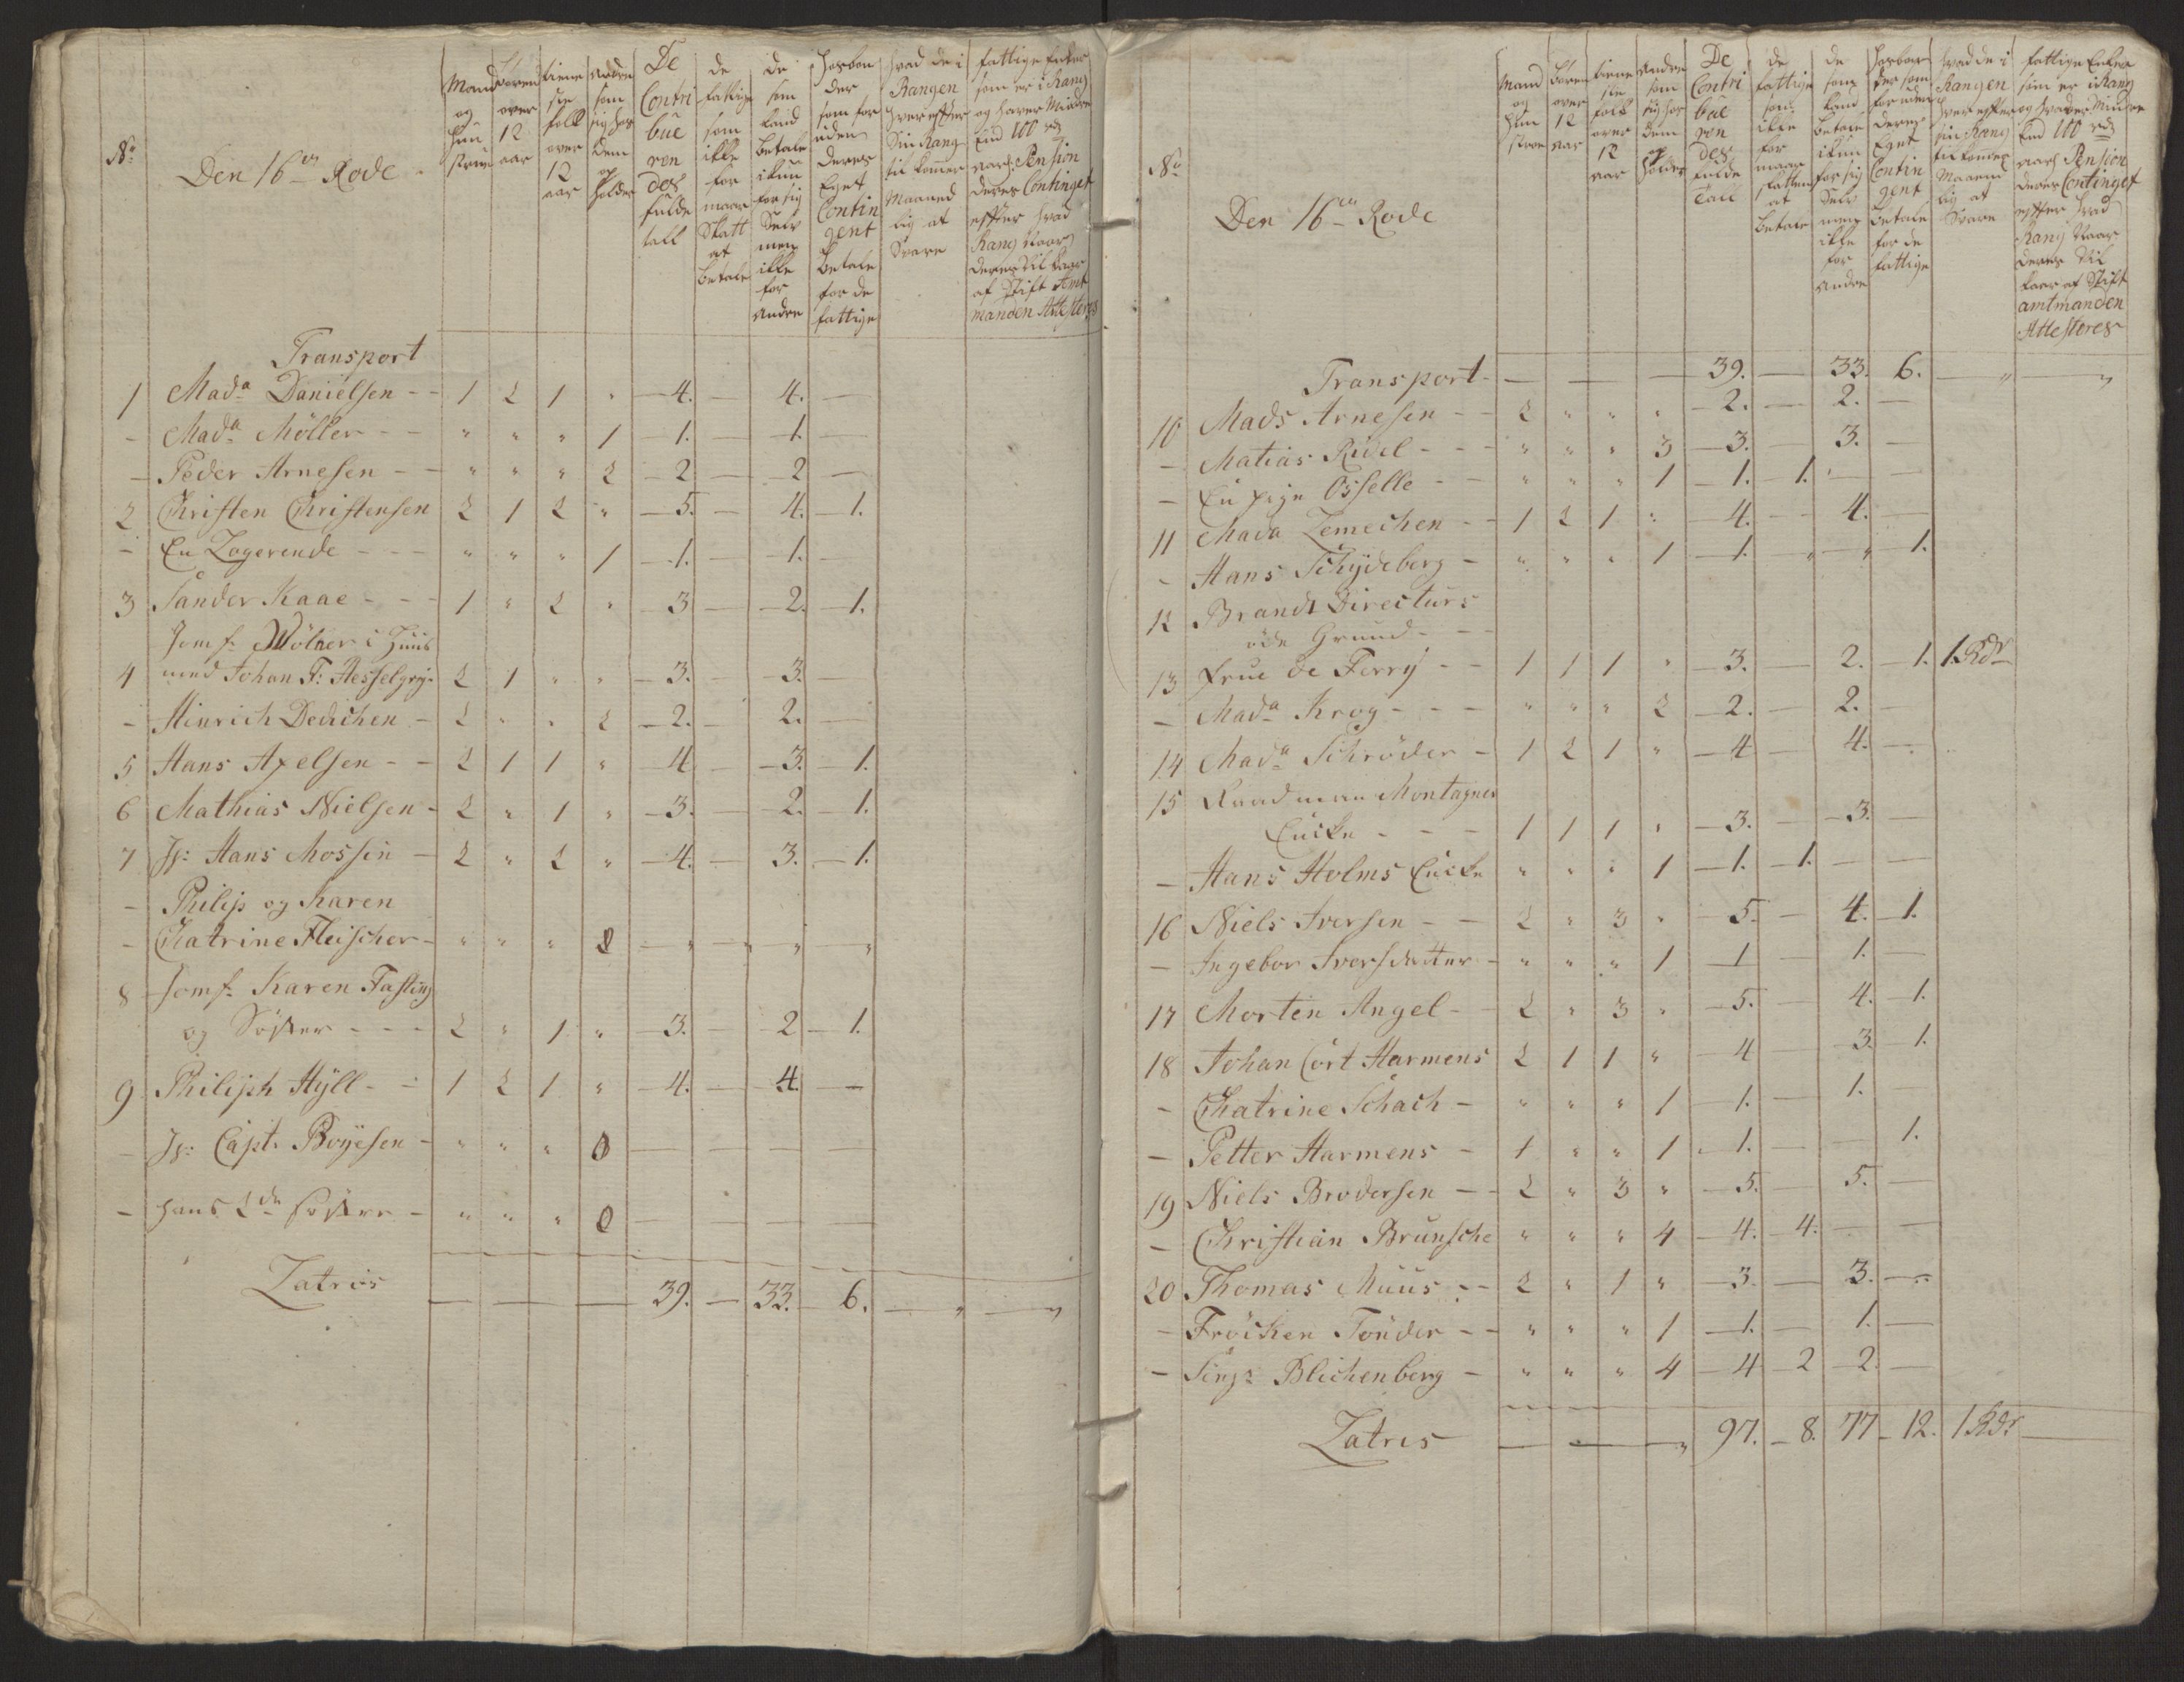 No
Den 16de Rode
Mand og Hun strue
Børen over 12 aar
tieneste folk over 12 aar
Andre som sig hos dem op holder
De Contribuerendes fulde tall
de fattige som ikke formaar Skatt at betale
de som kand betale ikun for sig Selv men ikke for andre
som for uden deres Eget Contingent betale for de fattige
hvad de i Rangen hver efter Sin Rang til komer Maaned lig at Svare
fattige Enker som er i Rang og haver Mindre End 100 rd aarl: Pension deres Continget efter hvad Rang Naar deres Vilkaar af Stift Amt manden Attesteres
Transport
1 Mada Danielsen - - 1 2 1 " 4. — 4. —
- Mada Möller - - " " " 1 1. — 1. —
- Peder Arnesen - - " " " 2 2 — 2 —
2 Christen Christensen 2 1 2 " 5. — 4. 1.
- En Logerende - - - " " " 1 1. — 1. —
3 Sander Kaae - - - 1 " 2 " 3 — 2. 1.
Jomf: Wölner i Huus
4 med Johan F: Hesselgrg: 2 1 " " 3. — 3. —
- Hinrich Dedichen - 2 " " 2 2. — 2. —
5 Hans Axelsen - - 2 1 1 " 4 — 3. 1.
6 Mathias Nielsen - 2 " 1 " 3. — 2. 1.
7 Hr: Hans Mossin - 2 " 2 " 4. — 3. 1.
- Philip og Karen
- Chatrine Fleischer - " " " 0 " " " "
8 Jomf: Karen Fasting
og Söster - - - 2 " 1 " 3. — 2 1.
9 Philiph Hÿll - - 1 2 1 " 4. — 4. —
- Hr: Capt: Boyesen - " " " 0 — — — —
- hans 2de söstre - " " " 0 — — — —
Latris — — — 39. — 33. 6. — " — "
No
Den 16de Rode
Mand og Hun strue
Børen over 12 aar
tieneste folk over 12 aar
Andre som sig hos dem op holder
De Contribuerendes fulde Tall
de fattige som ikke for maar skatten at betale
de som kand betale ikun for sig Selv men ikke for Andre
der som foruden deres Eget Contingent betale for de fattige
hvad de i Rangen hver efter sin Rang tilkomer Maaned lig at Svare
fattige Enker som er i Rang og haver Mindre End 100 rd aarl: Pension deres Continget efter hvad Rang Naar deres Vil kaar af Stift amtmanden Attesteres
Transport — — — 39. — 33. 6. — " — "
10 Mads Arnesen - - 2 " " " 2. — 2. —
- Matias Ridel - - " " " 3 3. — 3. —
- En pige Osselle - - " " " 1 1. 1. — —
11 Mada Lemechen - - 1 2 1 " 4. — 4. —
- Hans Schydeberg - " " " 1 1. " " 1.
12 Brandt Directurs
öde Grund - - -
13 Frue de Ferry - - 1 1 1 " 3. — 2. 1. 1. Rdr
- Mada Krog - - - " " " 2 2. — 2. —
14 Mada Schröder - 1 2 1 " 4 — 4. —
15 Raadmans Montagnes
Encke - - - 1 1 1 " 3. — 3. —
- Hans Holms Encke " " " 1 1. 1. — —
16 Niels Iversen - - 2 " 3 " 5. — 4. 1.
- Ingebor Iversdatter - " " " 1 1 1. —
17 Morten Angel - - 2 " 3 " 5. — 4. 1.
18 Johan Cort Harmens 2 1 1 " 4 — 3. 1.
- Chatrine Schach - " " " 1 1. — 1. —
- Petter Harmens - 1 " " 1 1. — — 1.
19 Niels Brodersen - - 2 " 3 " 5. — 5. —
- Christian Brunsche " " " 4 4. 4. — —
20 Thomas Muus - - 2 " 1 " 3. — 3. —
- Fröcken Tonder - - " " " 1 1. — 1. —
- Sing: Blichenberg - " " " 4 4 2 2 —
Latris — — — 97. 8. 77 12. 1 Rdr —